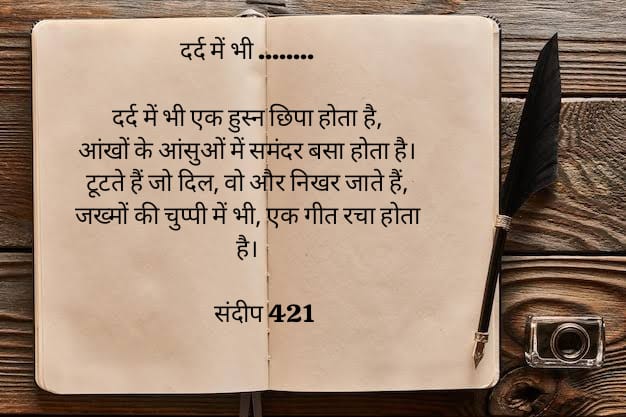 दर्द में भी ........
दर्द में भी एक हुस्न छिपा होता है,
आंखों के आंसुओं में समंदर बसा होता है।
टूटते हैं जो दिल, वो और निखर जाते हैं,
जख्मों की चुप्पी में भी, एक गीत रचा होता
है।
संदीप 421